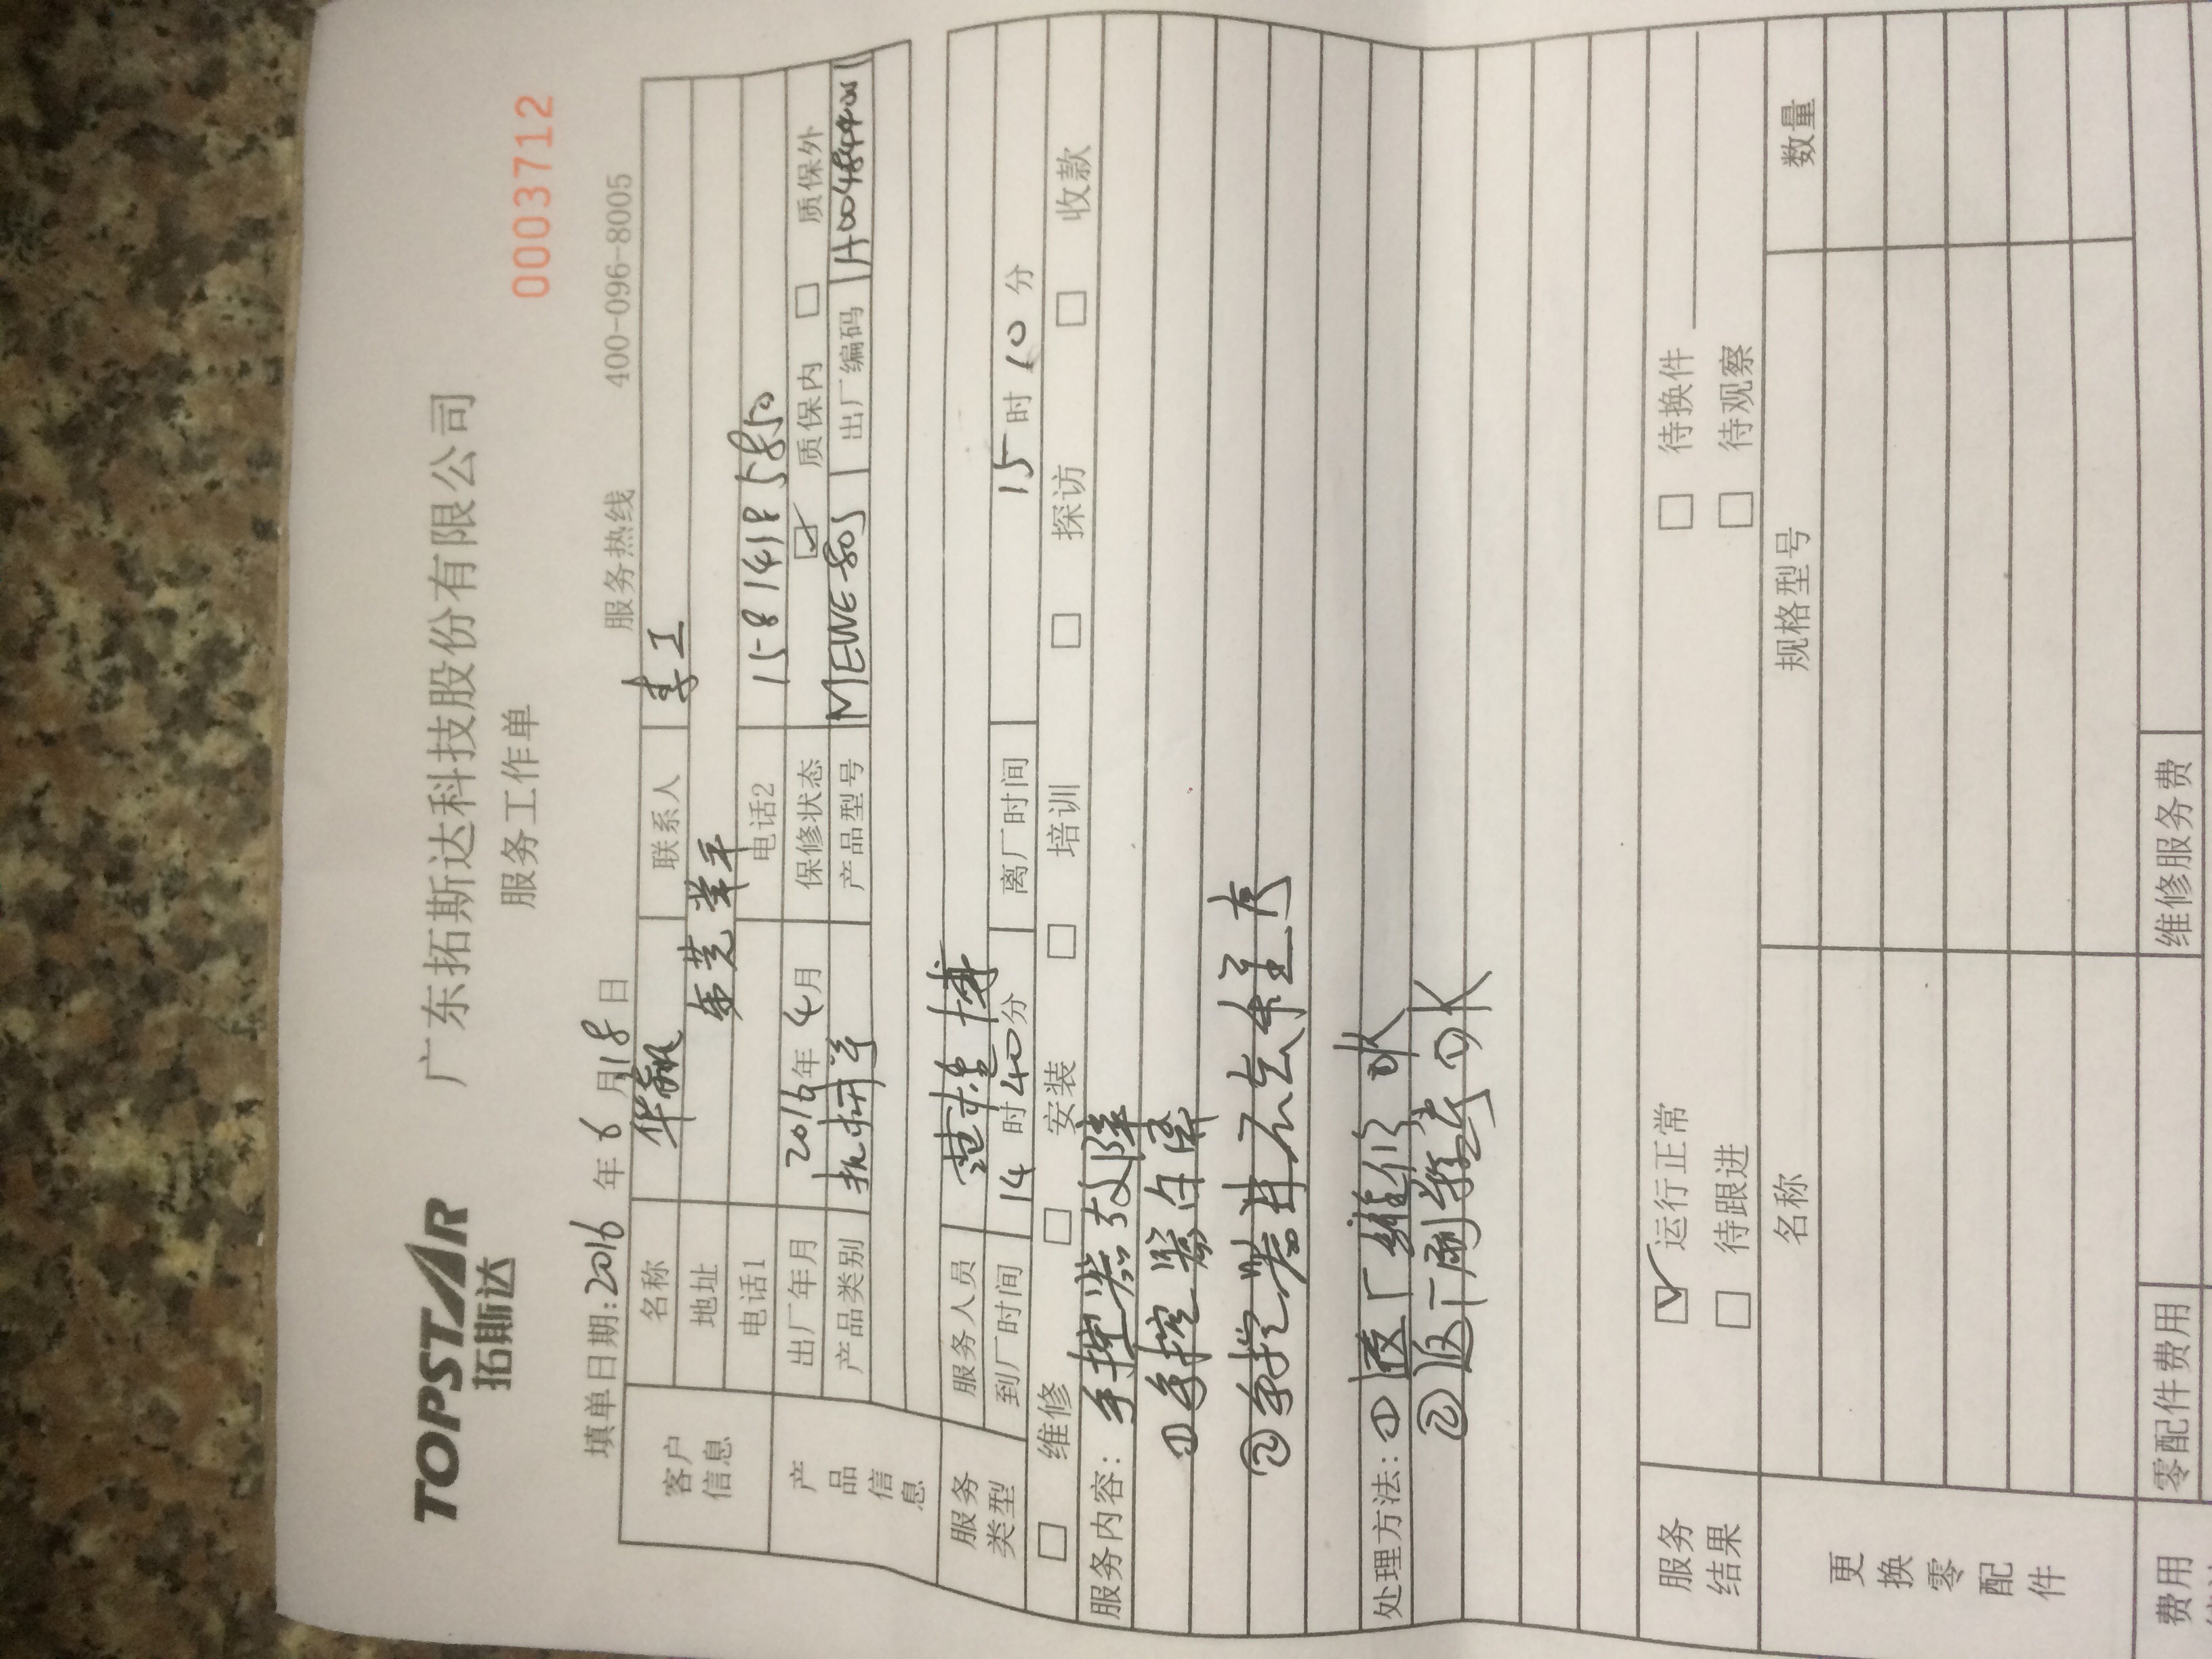 TOPSTAR
拓斯达
广东拓斯达科技股份有限公司
服务工作单
00003712
填单日期:2016年6月18日 服务热线 400-096-8005
客户信息
名称 华 联系人 李工
地址 东莞常平
电话1 电话2 15814185850
产品信息
出厂年月 2016年4月 保修状态 ☑ 质保内 □ 质保外
产品类别 机械手 产品型号 MEWE-80S 出厂编码
服务人员 博
到厂时间 14时40分 离厂时间 15时10分
服务类型
□ 维修 □ 安装 □ 培训 □ 探访 □ 收款
服务内容: 手控器故障
①手控器白屏
②手控器进不去余主页
处理方法: ①返厂维修 OK
②返厂刷程序 OK
服务结果
☑ 运行正常 □ 待换件
□ 待跟进 □ 待观察
更换零配件
名称 规格型号 数量
费用
零配件费用 维修服务费